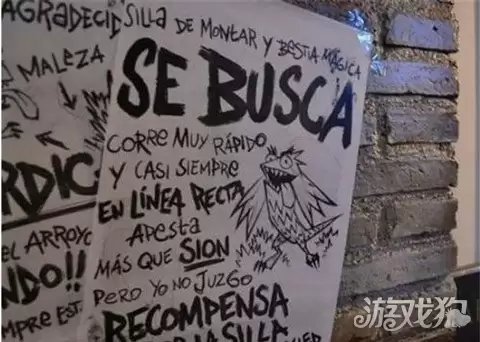 AGRADECID
MALEZA
RDIC
EL ARROYO
NDO!!
EMPRE EST
SILLA DE MONTAR Y BESTIA MÁGICA
SE BUSCA
CORRE MUY RÁPIDO
Y CASI SIEMPRE
EN LÍNEA RECTA
APESTA
MÁS QUE SION
PERO YO NO JUZGO
RECOMPENSA
LA SILLA
游戏狗